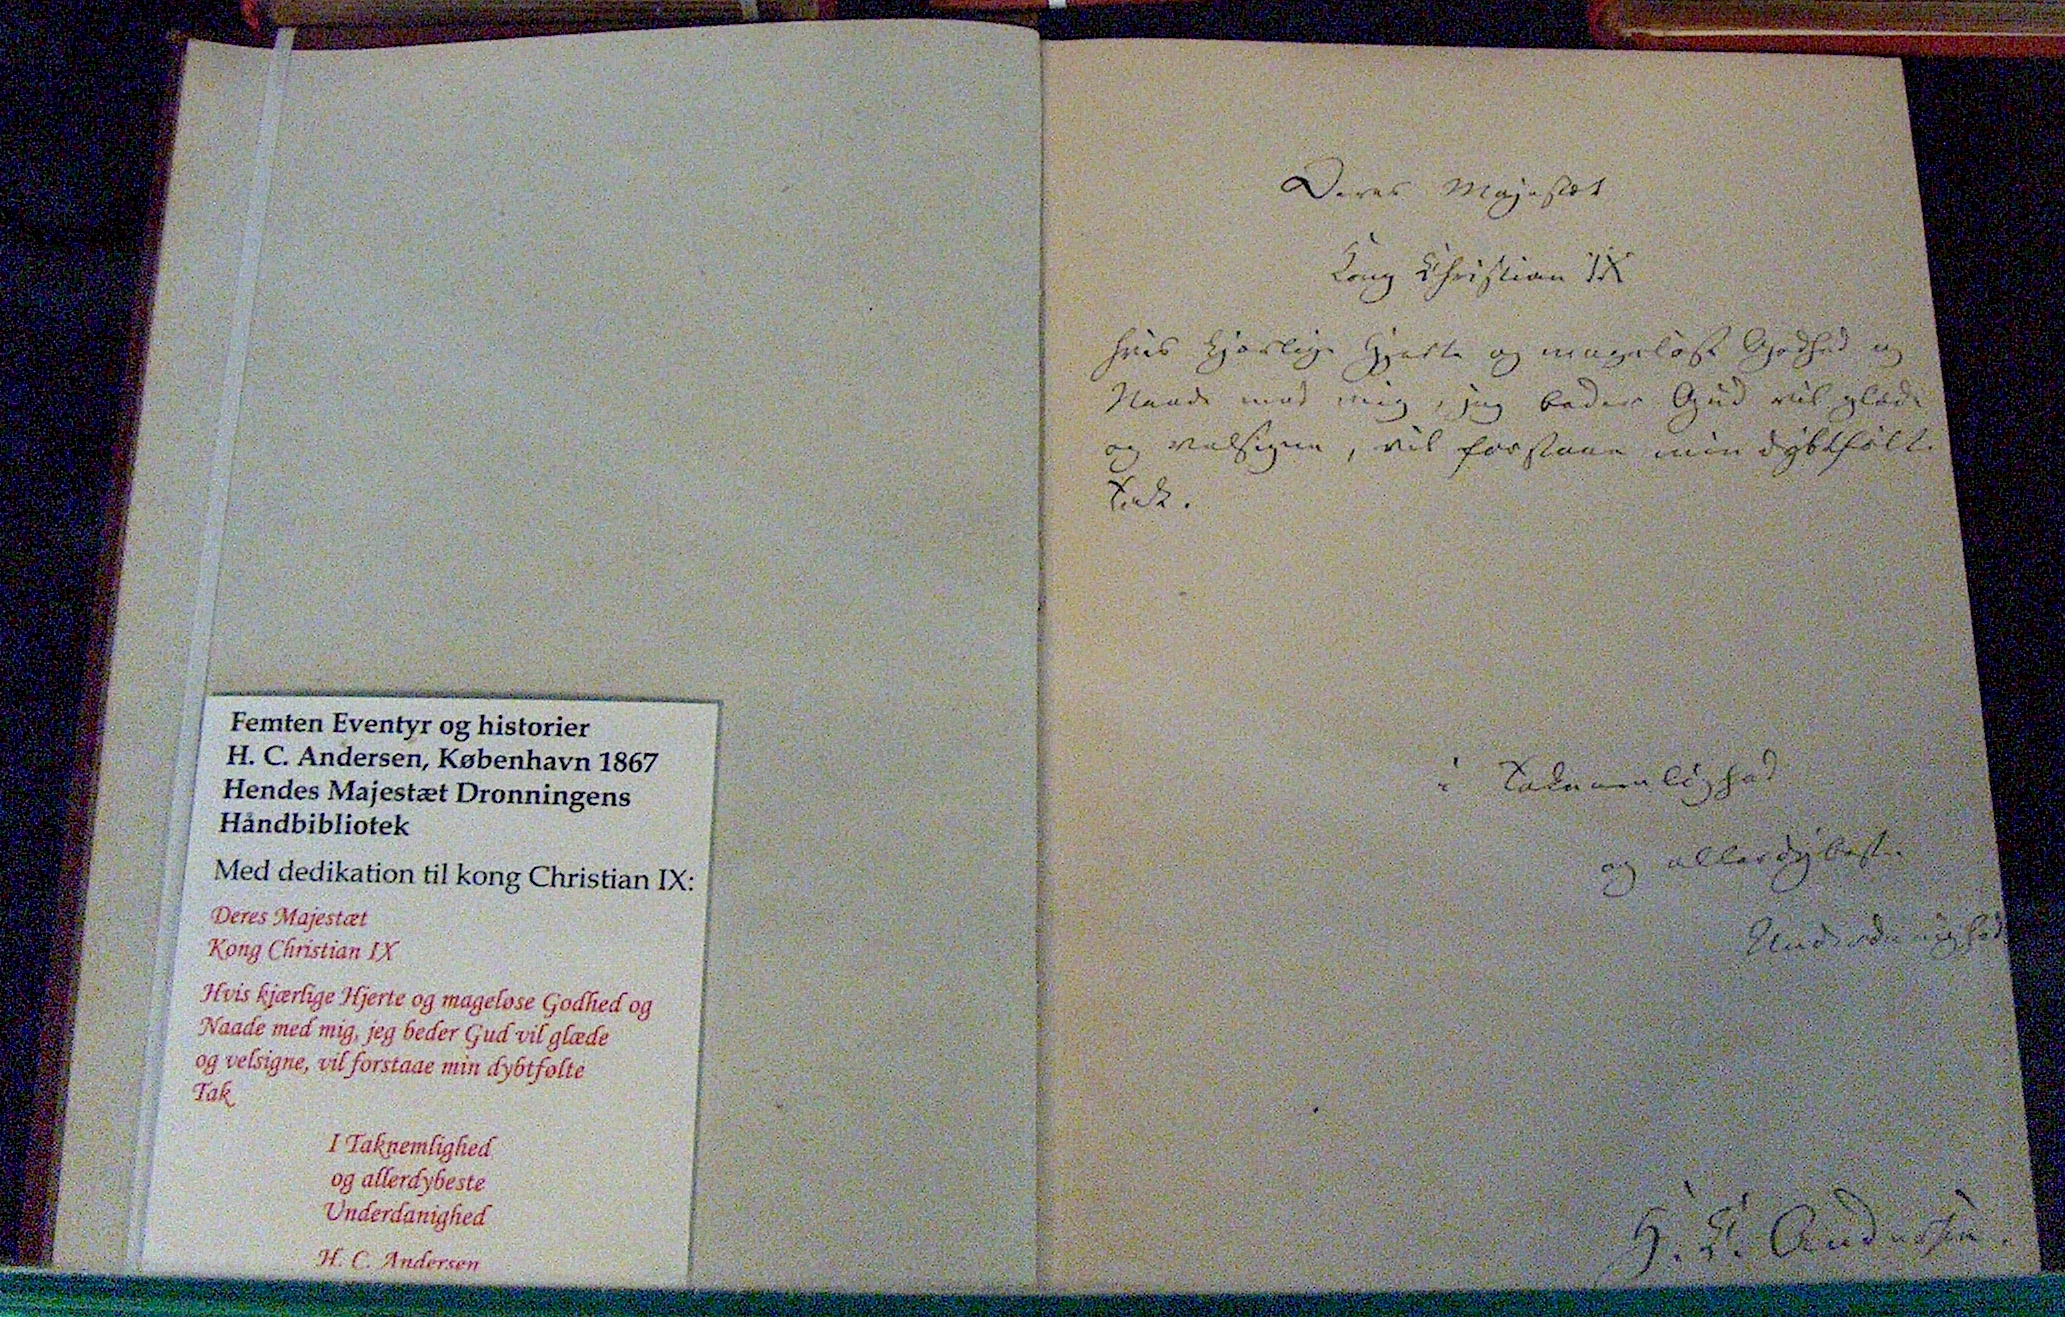 Femten Eventyr og historier
H. C. Andersen, København 1867
Hendes Majestæt Dronningens
Håndbibliotek
Med dedikation til kong Christian IX:
Deres Majestæt
Kong Christian IX
Hvis kjærlige Hjerte og mageløse Godhed og
Naade med mig, jeg beder Gud vil glæde
og velsigne, vil forstaae min dybtfølte
Tak
I Taknemlighed
og allerdybeste
Underdanighed
H. C. Andersen
Deres Majestæt
Kong Christian IX
hvis kjærlige Hjerte og mageløse Godhed og
Naade med mig, jeg beder Gud vil glæde
og velsigne, vil forstaae min dybtfølte
Tak.
i Taknemlighed
og allerdybeste
Underdanighed
H. C. Andersen.